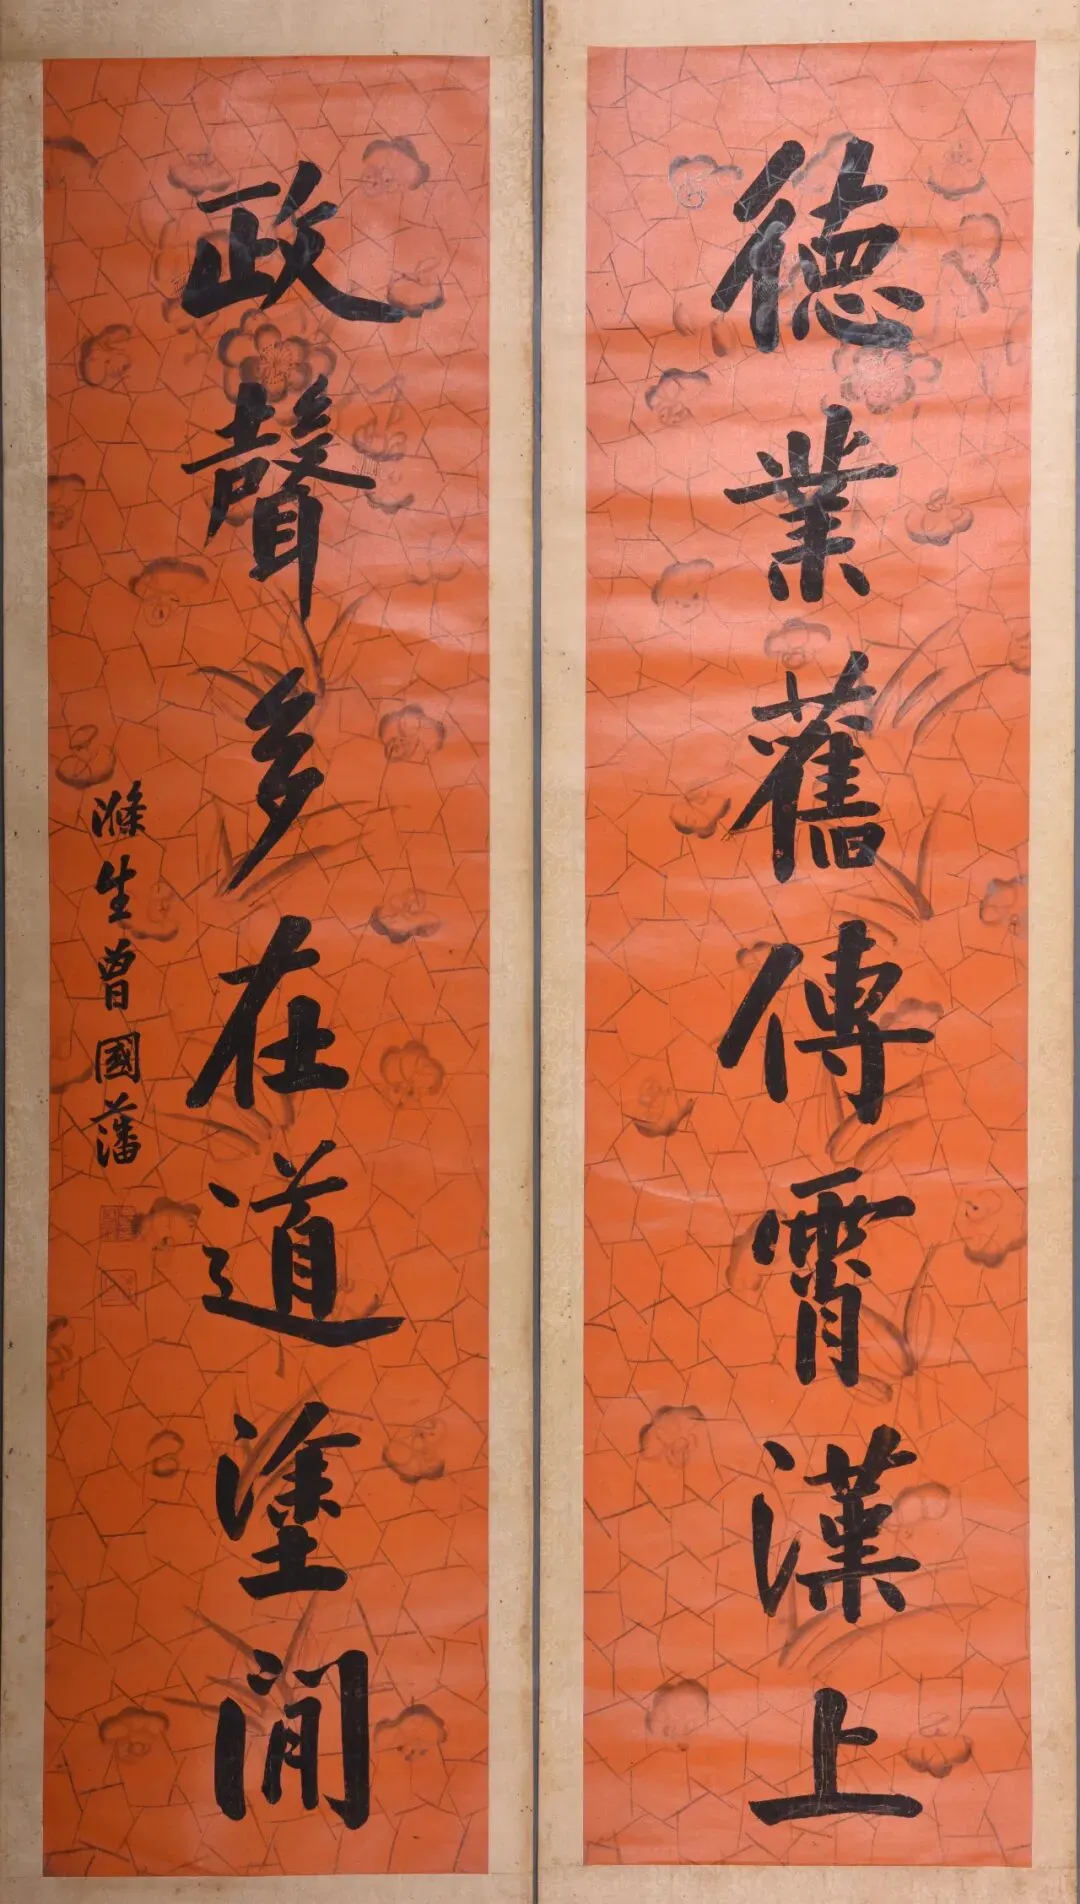 德業舊傳霄漢上
政聲多在道塗閒
滌生曾國藩